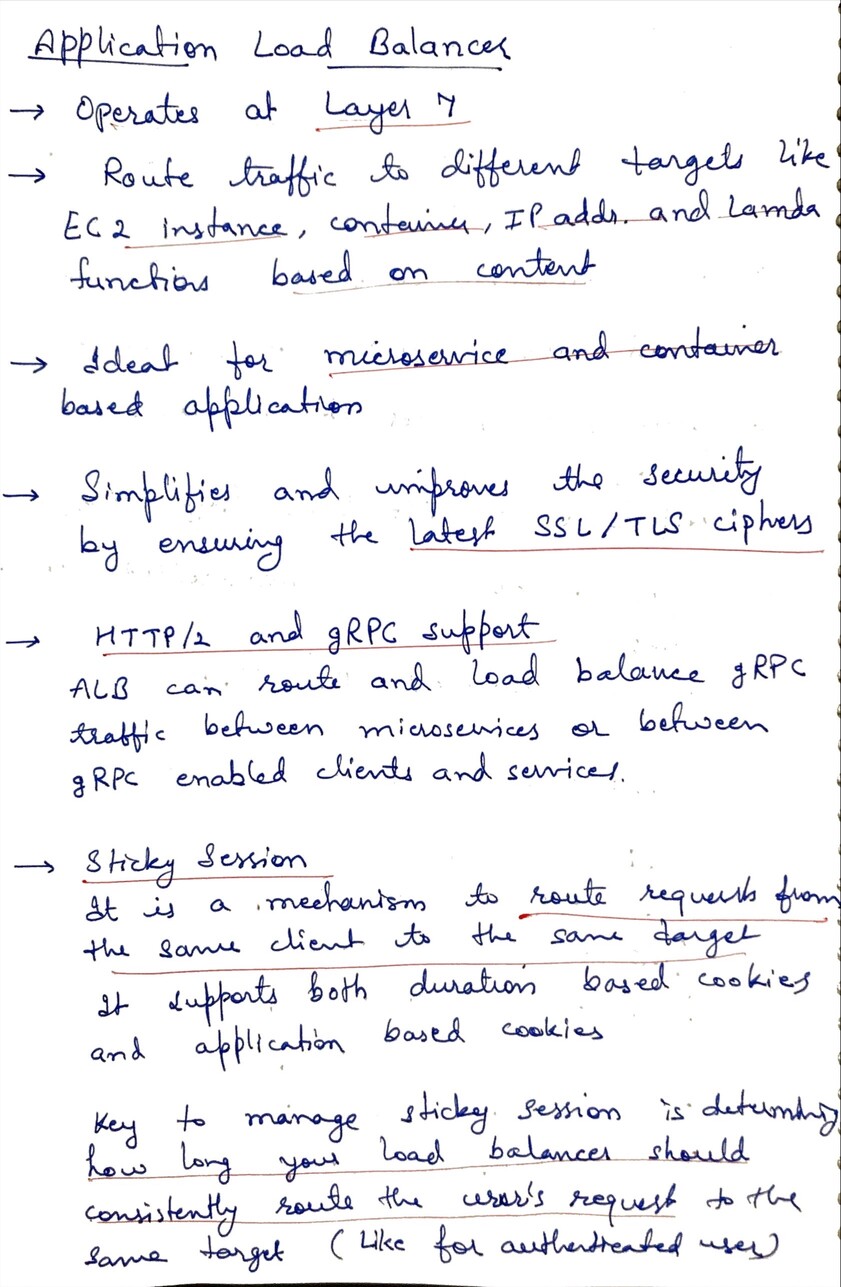 Application Load Balancer
→ Operates at Layer 7
→ Route traffic to different targets like
EC2 instance, container, IP addr. and Lamda
functions based on content
→ Ideal for microservice and container
based application
→ Simplifies and improves the security
by ensuring the latest SSL/TLS ciphers
→ HTTP/2 and gRPC support
ALB can route and load balance gRPC
traffic between microservices or between
gRPC enabled clients and services.
→ Sticky Session
It is a mechanism to route requests from
the same client to the same target
It supports both duration based cookies
and application based cookies
Key to manage sticky session is determining
how long your load balancer should
consistently route the user's request to the
same target (Like for authenticated user)